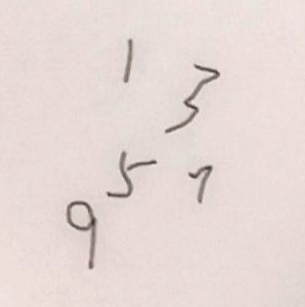 1 3
5 7
9